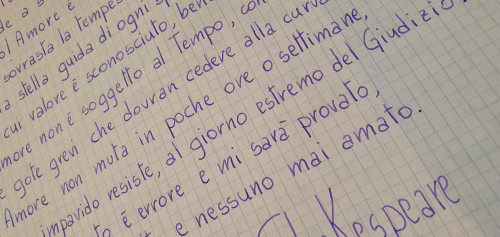 o! Amore è
sovrasta la tempes
stella guida di ogni
cui valore è sconosciuto, ben
more non è soggetto al Tempo, con
gote grevi che dovran cedere alla curva
Amore non muta in poche ore o settimane,
impavido resiste, al giorno estremo del Giudizio
è errore e mi sarà provato,
e nessuno mai amato.
kespeare